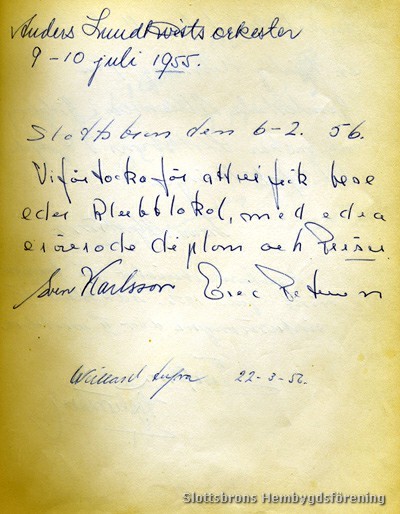 Anders Lundkvists orkester
9-10 juli 1955.
Slottsbron den 6-2. 56.
Vi får tacka för att vi fick bese
eder Klubblokal, med edra
erövrade diplom och Priser
Sven Karlsson Eric Peterson
Willard 22-3-56.
Slottsbrons Hembygdsförening